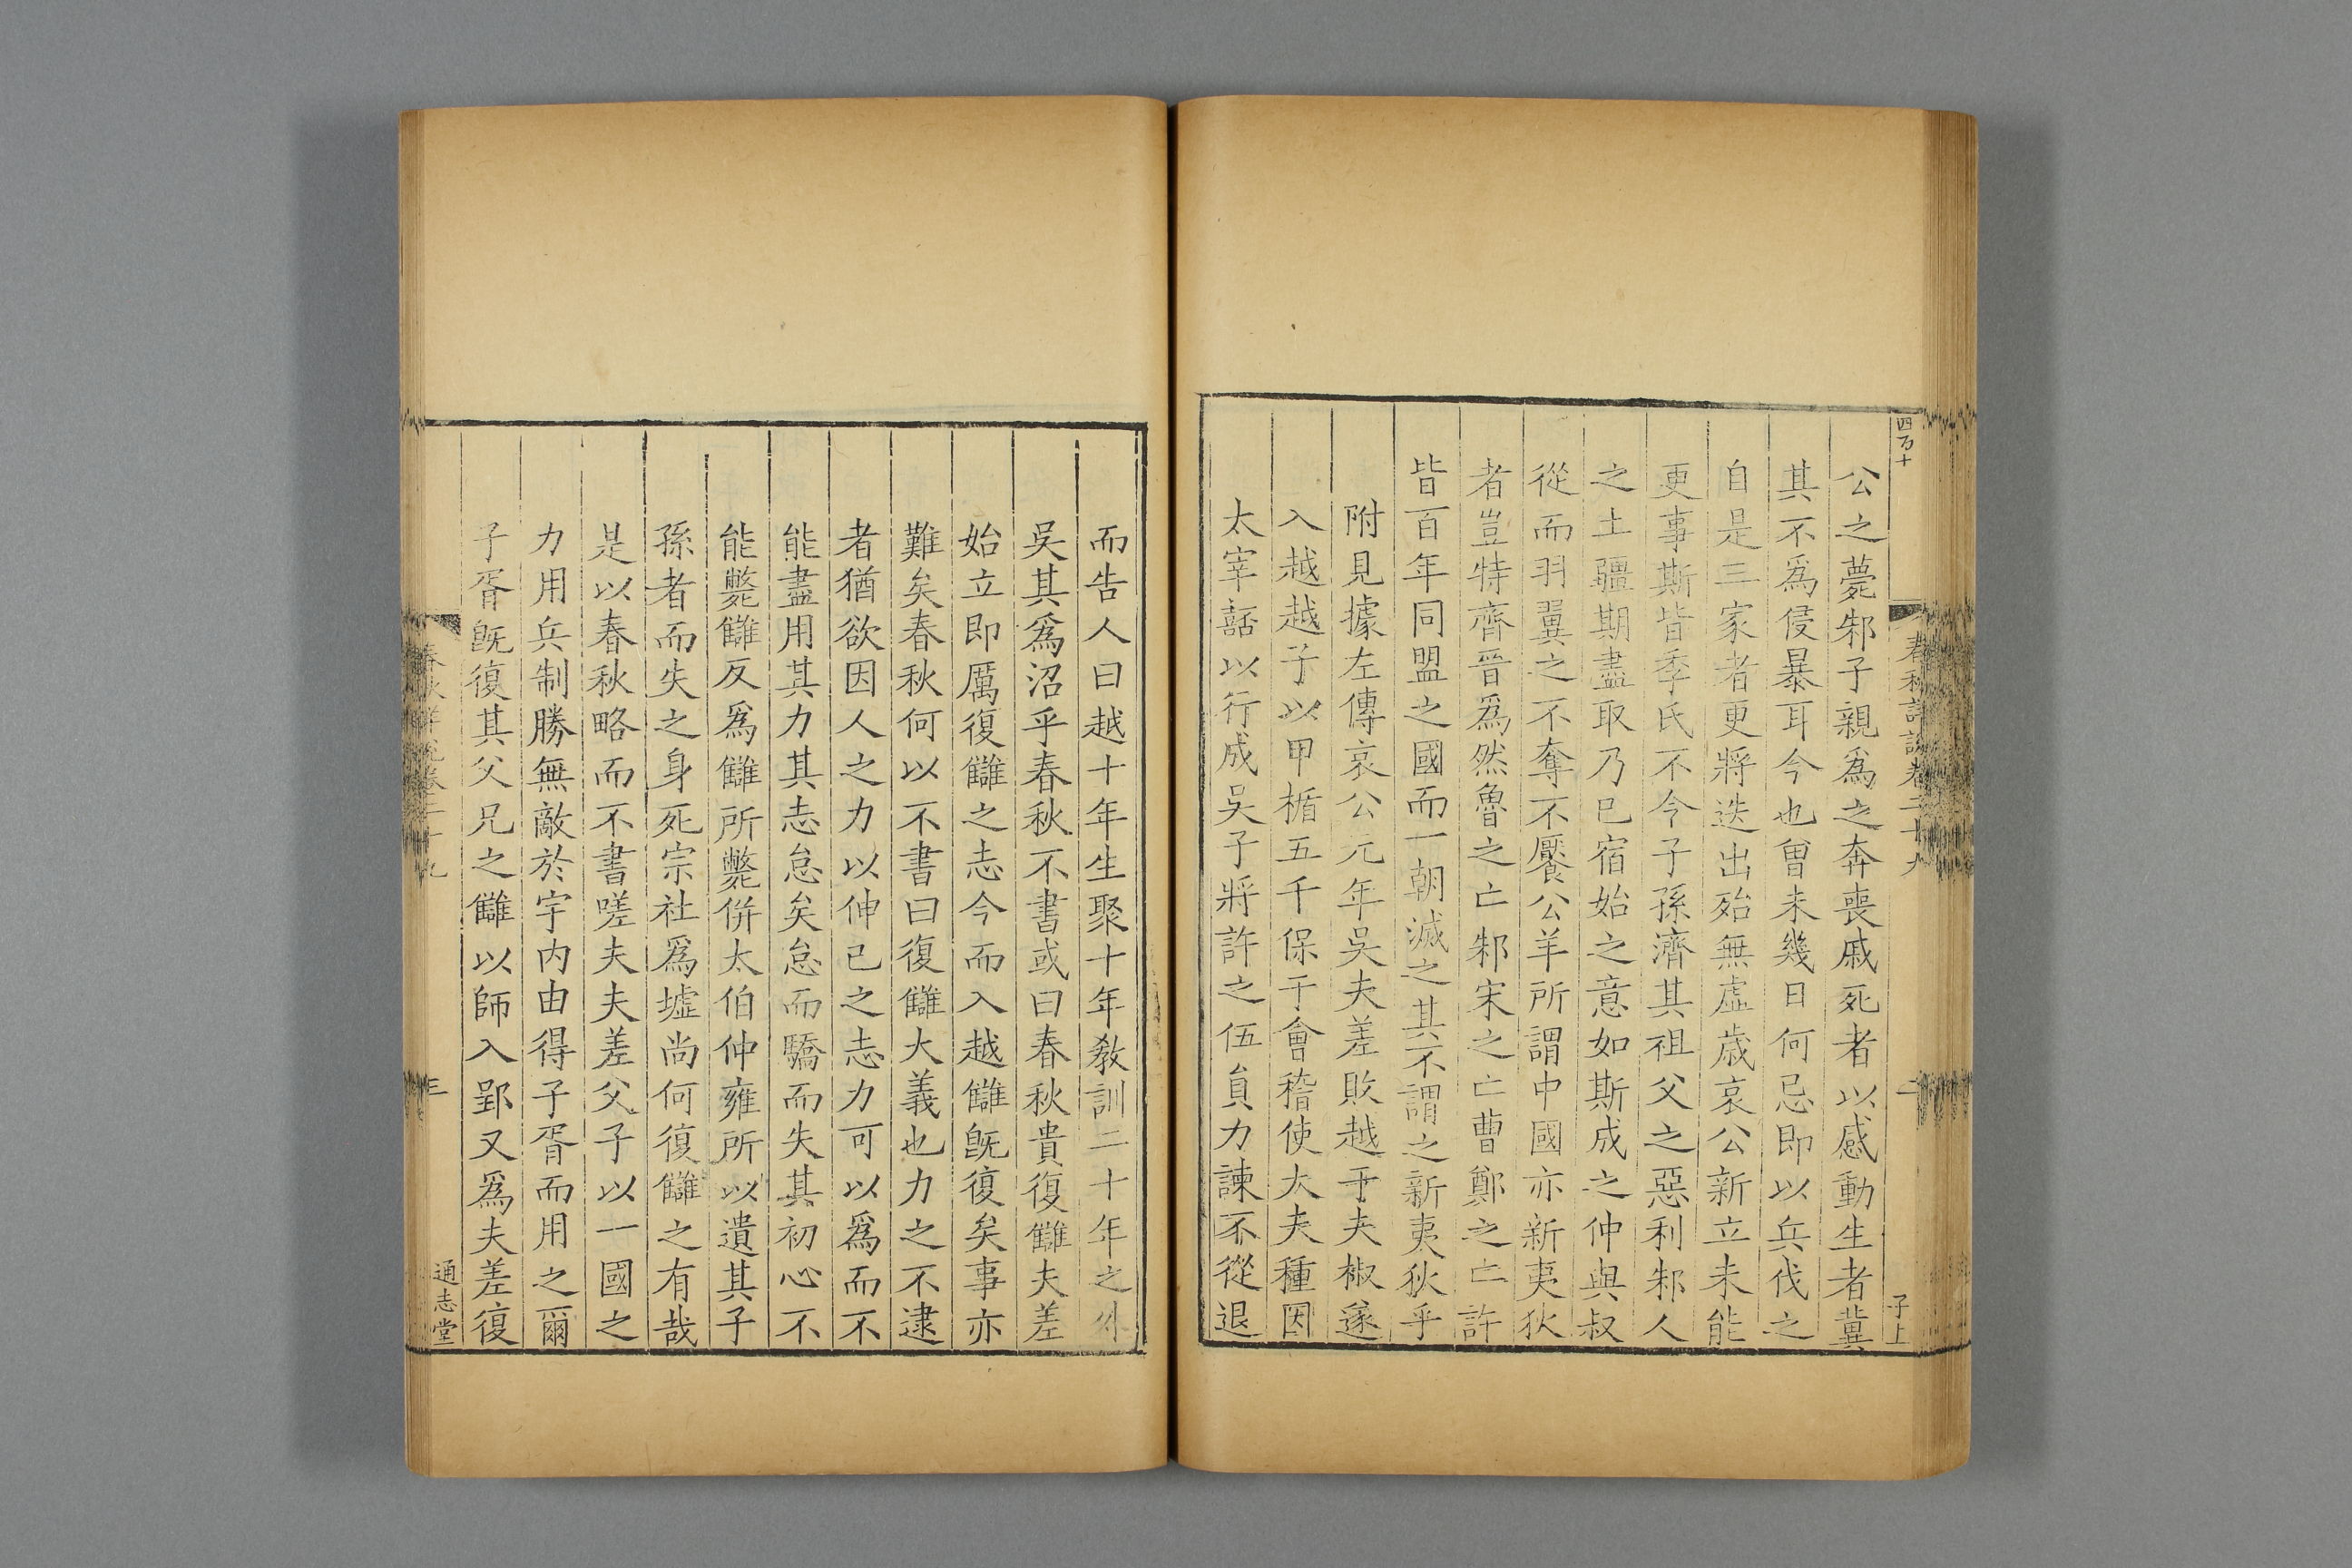 四百十
春秋詳說卷二十九
二
子上
公之薨邾子親爲之奔喪戚死者以感動生者冀
其不爲侵暴耳今也曾未幾日何忌即以兵伐之
自是三家者更將迭出殆無虛歲哀公新立未能
更事斯皆季氏不令子孫濟其祖父之惡利邾人
之土疆期盡取乃已宿始之意如斯成之仲與叔
從而羽翼之不奪不饜公羊所謂中國亦新夷狄
者豈特齊晉爲然魯之亡邾宋之亡曹鄭之亡許
皆百年同盟之國而一朝滅之其不謂之新夷狄乎
附見據左傳哀公元年吳夫差敗越于夫椒遂
入越越子以甲楯五千保于會稽使大夫種因
太宰嚭以行成吳子將許之伍員力諫不從退
而告人曰越十年生聚十年敎訓二十年之外
吳其爲沼乎春秋不書或曰春秋貴復讎夫差
始立即厲復讎之志今而入越讎旣復矣事亦
難矣春秋何以不書曰復讎大義也力之不逮
者猶欲因人之力以伸己之志力可以爲而不
能盡用其力其志怠矣怠而驕而失其初心不
能斃讎反爲讎所斃併太伯仲雍所以遺其子
孫者而失之身死宗社爲墟尚何復讎之有哉
是以春秋略而不書嗟夫夫差父子以一國之
力用兵制勝無敵於宇內由得子胥而用之爾
子胥旣復其父兄之讎以師入郢又爲夫差復
春秋詳說卷二十九
三
通志堂